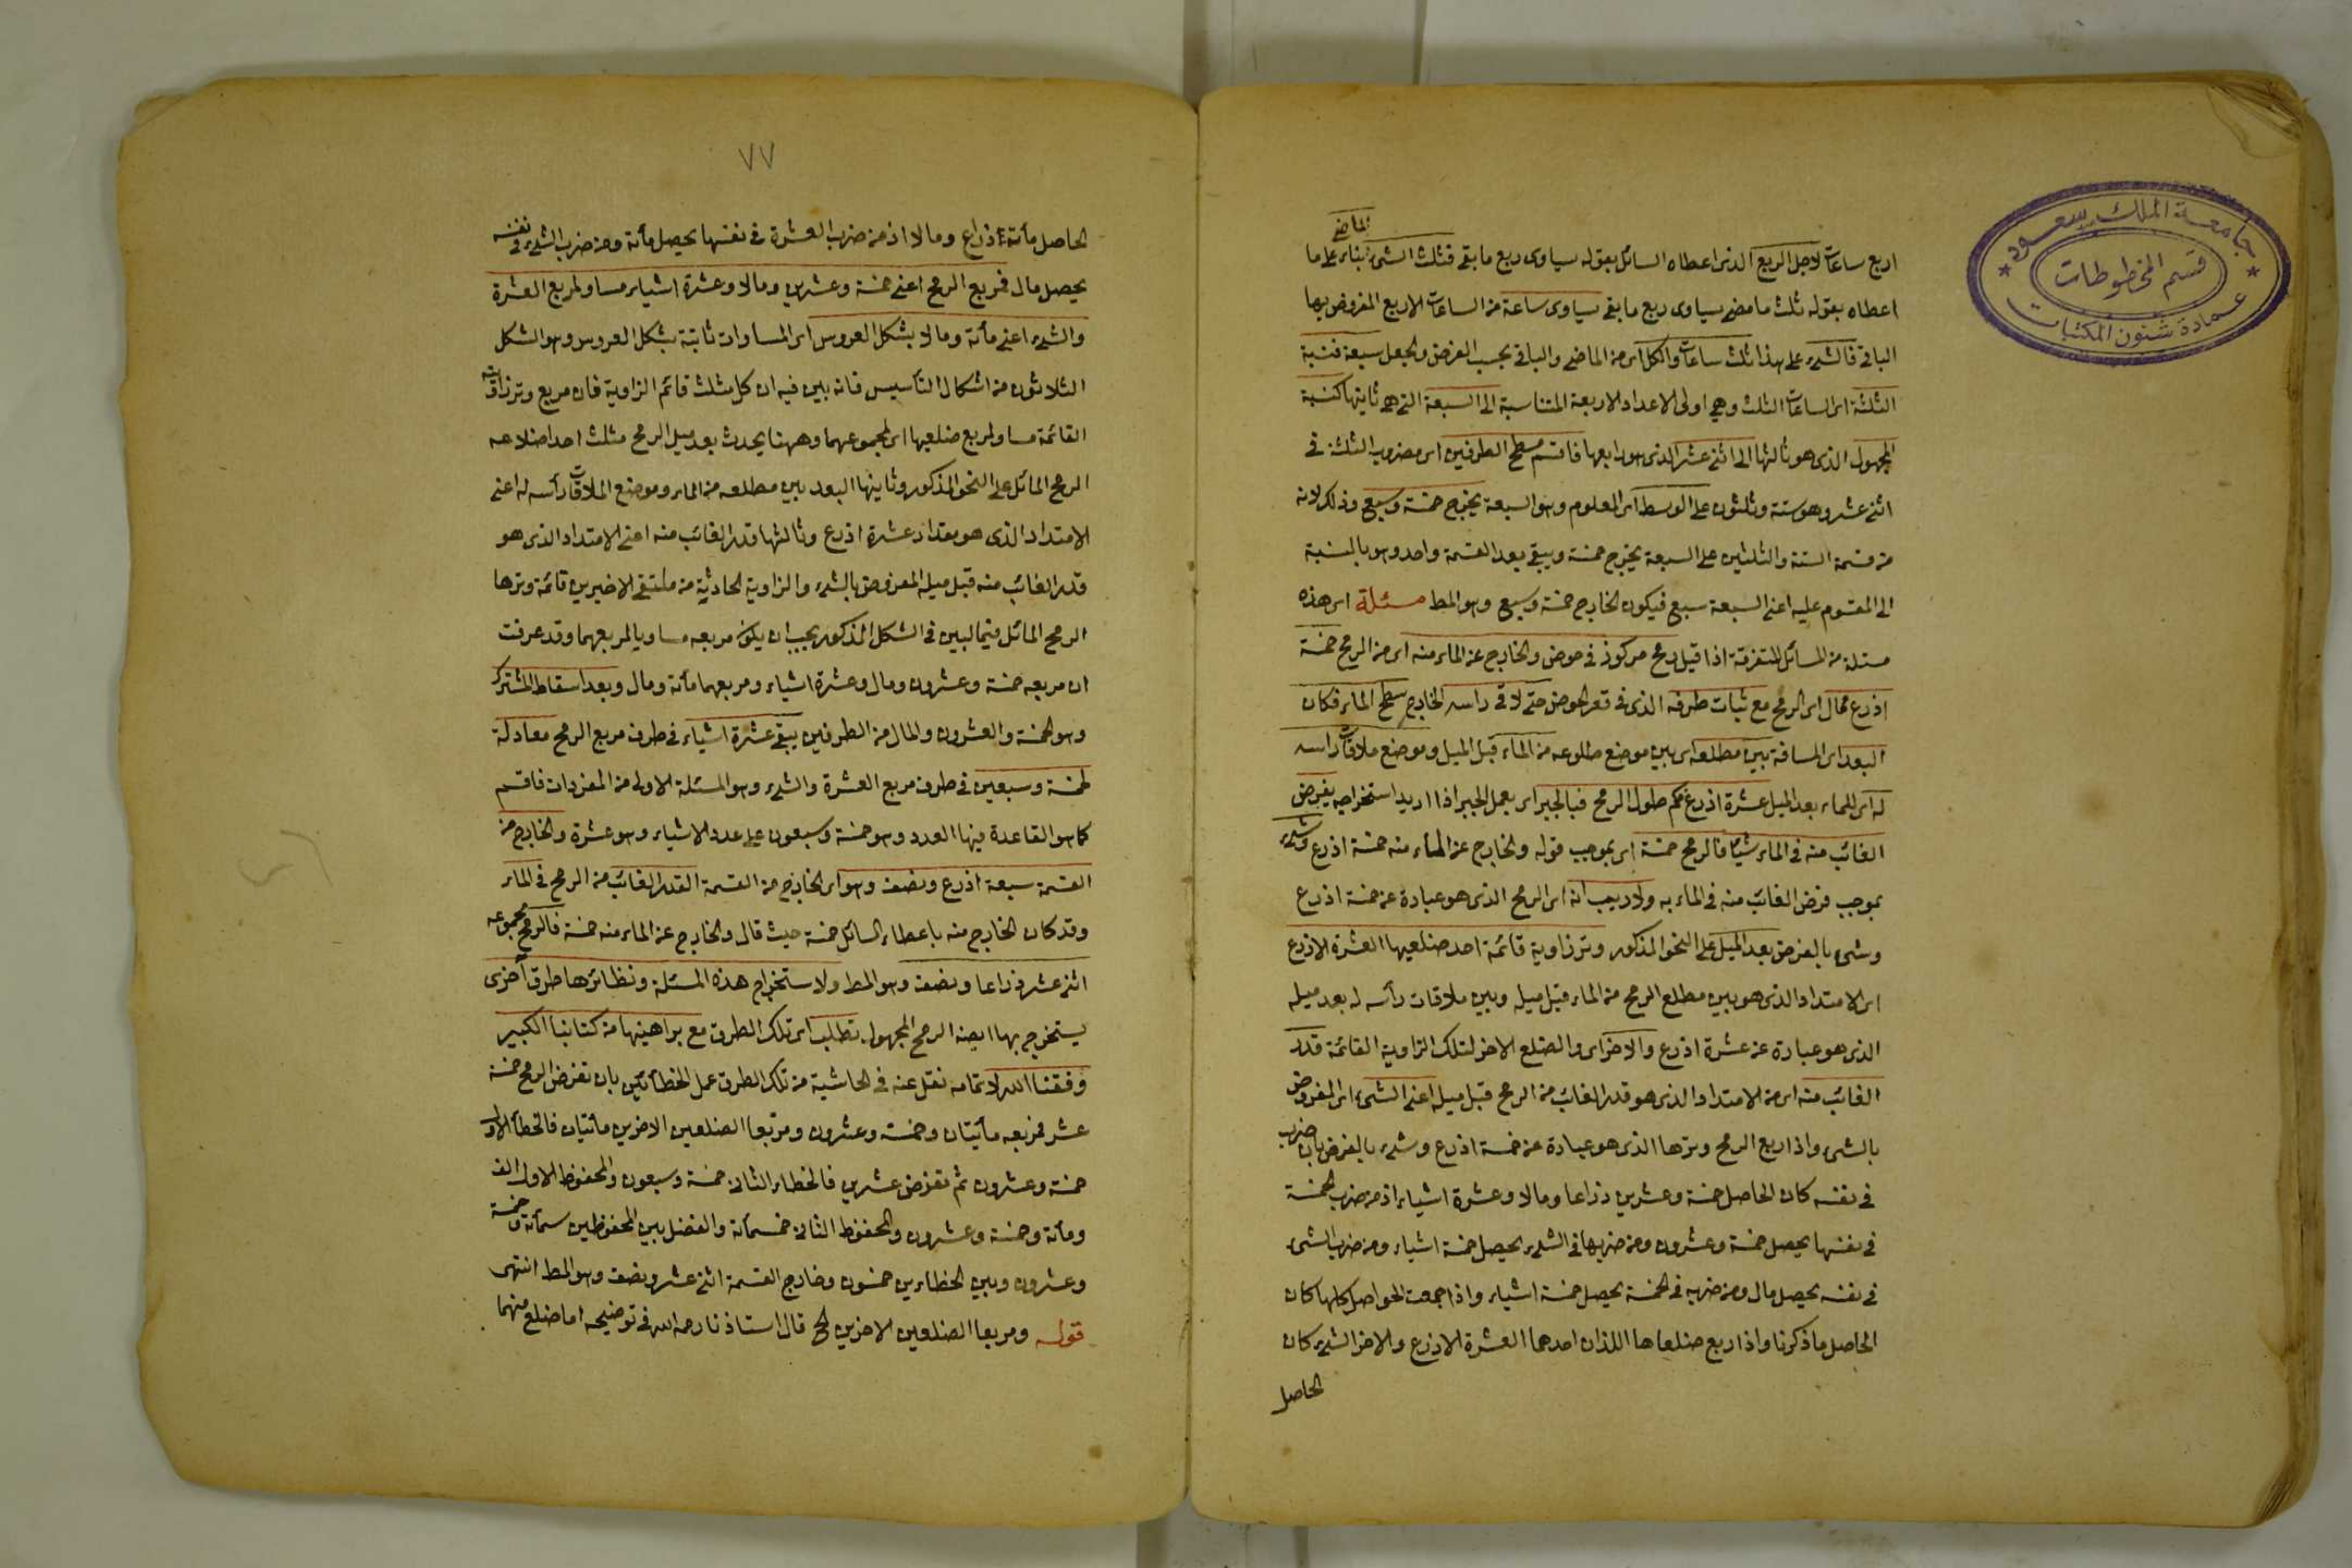 جامعة الملك سعود
قسم المخطوطات
عمادة شئون المكتبات
الماضي
اربع ساعات لاجل الربع الذى اعطاه السائل بقوله يساوى ربع ما بقى فثلث الشئ بناء على ما
اعطاه بقوله ثلث ما مضى يساوى ربع ما بقى يساوى ساعة من الساعات الاربع المفروض بها
الباقى فالشئ على هذا ثلث ساعات والكل اى من الماضى والباقى بحسب الفرض والجعل سبعة فنسبة
الثلثة اى الساعات الثلث وهى اولى الاعداد الاربعة المتناسبة الى السبعة التى هى ثانيتها كنسبة
المجهول الذى هو ثالثها الى اثنى عشر الذى هو رابعها فاقسم مسطح الطرفين اى مضروب الثلثة فى
اثنى عشر وهو ستة وثلثون على الوسط اى المعلوم وهو السبعة يخرج خمسة وسبع وذلك لانه
من قسمة الستة والثلثين على السبعة يخرج خمسة ويبقى بعد القسمة واحد وهو بالنسبة
الى المقسوم عليه اعنى السبعة سبع فيكون الخارج خمسة وسبع وهو المط مسئلة اى هذه
مسئلة من المسائل المتفرقة اذا قيل رمح مركوز فى حوض والخارج عن الماء منه اى من الرمح خمسة
اذرع فمال اى الرمح مع ثبات طرفه الذى فى قعر الحوض حتى لاقى راسه الخارج سطح الماء فكان
البعد اى المسافة بين مطلعه اى بين موضع طلوعه من الماء قبل الميل وموضع ملاقات راسه
له اى للماء بعد الميل عشرة اذرع فكم طول الرمح فبالجبر اى بعمل الجبر اذا اريد استخراجه يفرض
الغائب منه فى الماء شيئا فالرمح خمسة اى بموجب قوله والخارج عن الماء منه خمسة اذرع وشئ
بموجب فرض الغائب منه فى الماء به ولا ريب انه اى الرمح الذى هو عبارة عن خمسة اذرع
وشئ بالفرض بعد الميل على النحو المذكور وتر زاوية قائمة احد ضلعيها العشرة الاذرع
اى الامتداد الذى هو بين مطلع الرمح من الماء قبل ميله وبين ملاقات رأسه له بعد ميله
الذى هو عبارة عن عشرة اذرع والاخر اى والضلع الاخر لتلك الزاوية القائمة قدر
الغائب منه اى من الامتداد الذى هو قدر الغائب من الرمح قبل ميله اعنى الشئ اى المفروض
بالشئ واذا ربع الرمح وترها الذى هو عبارة عن خمسة اذرع وشئ بالفرض بان ضرب
فى نفسه كان الحاصل خمسة وعشرين ذراعا ومالا وعشرة اشياء اذ من ضرب الخمسة
فى نفسها يحصل خمسة وعشرون ومن ضربها فى الشئ يحصل خمسة اشياء ومن ضرب الشئ
فى نفسه يحصل مال ومن ضربه فى الخمسة يحصل خمسة اشياء واذا جمعت الحواصل كلها كان
الحاصل ما ذكرنا واذا ربع ضلعاها اللذان احدهما العشرة الاذرع والاخر الشئ كان
الحاصل
٧٧
الحاصل مأتة اذراع ومالا اذ من ضرب العشرة فى نفسها يحصل مأتة ومن ضرب الشئ فى نفسه
يحصل مال فربع الرمح اعنى خمسة وعشرين ومالا وعشرة اشياء مساو لمربع العشرة
والشئ اعنى مأتة ومالا بشكل العروس اى المساوات ثابتة بشكل العروس وهو الشكل
الثلاثون من اشكال التأسيس فانه بين فيه ان كل مثلث قائم الزاوية فان مربع وتر زاويته
القائمة مساو لمربع ضلعيها اى لمجموعهما وههنا يحدث بعد ميل الرمح مثلث احد اضلاعه
الرمح المائل على النحو المذكور وثانيها البعد بين مطلعه من الماء وموضع الملاقات رأسه له اعنى
الامتداد الذى هو بمقدار عشرة اذرع وثالثها قدر الغائب منه اعنى الامتداد الذى هو
قدر الغائب منه قبل ميله المفروض بالشئ والزاوية الحادثة من ملتقى الاخيرين قائمة وترها
الرمح المائل فيما لبين فى الشكل المذكور يجب ان يكون مربعه مساويا لمربعهما وقد عرفت
ان مربعه خمسة وعشرون ومال وعشرة اشياء ومربعهما مأتة ومال وبعد اسقاط المشترك
وهو الخمسة والعشرون والمال من الطرفين يبقى عشرة اشياء فى طرف مربع الرمح معادلة
لخمسة وسبعين فى طرف مربع العشرة والشئ وهو المسئلة الاولى من المفردات فاقسم
كما هو القاعدة فيها العدد وهو خمسة وسبعون على عدد الاشياء وهو عشرة والخارج من
القسمة سبعة اذرع ونصف وهو اى الخارج من القسمة القدر الغائب من الرمح فى الماء
وقد كان الخارج منه باعطاء السائل خمسة حيث قال والخارج عن الماء منه خمسة فالرمح مجموعه
اثنى عشر ذراعا ونصف وهو المط ولاستخراج هذه المسئلة ونظائرها طرق أخرى
يستخرج بها ايضا الرمح المجهول تطلب اى تلك الطرق مع براهينها من كتابنا الكبير
وفقنا الله لاتمامه نقل عنه فى الحاشية من تلك الطرق عمل الخطأئين بان تفرض الرمح خمسة
عشر فمربعه مأتيان وخمسة وعشرون ومربعا الضلعين الاخرين مأتيان فالخطأ الاول
خمسة وعشرون ثم تفرض عشرين فالخطاء الثانى خمسة وسبعون والمحفوظ الاول الف
ومأتة وخمسة وعشرون والمحفوظ الثانى خمسمأتة والفضل بين المحفوظين ستمأتة وخمسة
وعشرون وبين الخطاءين خمسون وخارج القسمة اثنى عشر ونصف وهو المط انتهى
قوله ومربعا الضلعين الاخرين الخ قال استاذنا رحمه الله فى توضيحه اما ضلع منهما